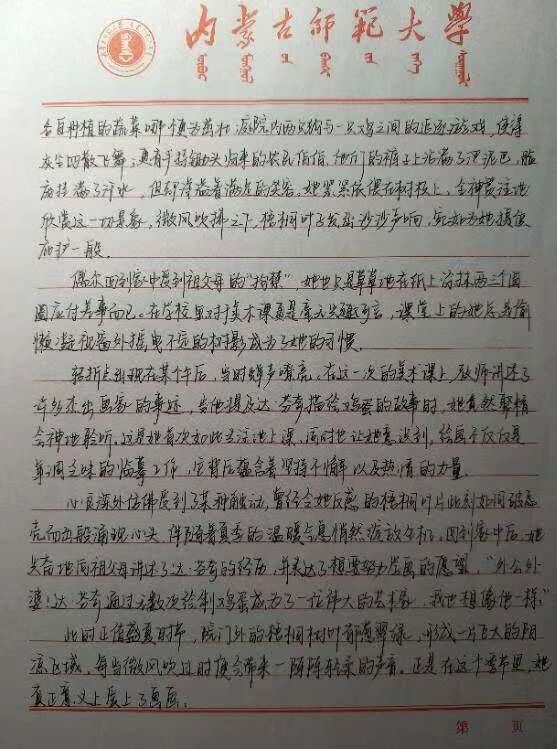 内蒙古师范大学
各自种植的蔬菜哪个更为茁壮；庭院内两只狗与一只鸡之间的追逐游戏，使得
灰尘四散飞舞；更有手握锄头归来的农民伯伯，他们的裤子上沾满了泥巴，脸
庞挂满了汗水，但却洋溢着满足的笑容。她紧紧依偎在树枝上，全神贯注地
欣赏这一切景象，微风吹拂之下，梧桐叶子发出沙沙声响，宛如为她摄像
庇护一般。
偶尔回到家中受到祖父母的“拘禁”，她也只是草草地在纸上涂抹两三个圆
圈应付差事而已。在学校里对于美术课更是毫无兴趣可言，课堂上的她总是偷
懒，凝视窗外摇曳不定的树影成为了她的习惯。
转折点出现在某个午后，当时蝉声嘹亮。在这一次的美术课上，教师讲述了
许多杰出画家的事迹，当他提及达·芬奇描绘鸡蛋的故事时，她竟然聚精
会神地聆听。这是她首次如此专注地上课，同时也让她意识到，绘画不仅仅是
单调乏味的临摹工作，它背后蕴含着坚持不懈以及热情的力量。
心灵深处仿佛受到了某种触动，曾经令她反感的梧桐叶片此刻如同破忘
壳而出般涌现心头，伴随着夏季的温暖气息悄然绽放生机。回到家中后，她
兴奋地向祖父母讲述了达·芬奇的经历，并表达了想要努力学画的愿望。“外公外
婆！达·芬奇通过无数次绘制鸡蛋成为了一位伟大的艺术家，我也想像他一样。”
此时正值盛夏时节，院门外的梧桐树叶郁郁翠绿，形成一片巨大的阴
凉区域，每当微风吹过时便会带来一阵阵轻柔的声音。正是在这个季节里，她
真正意义上爱上了画画。
第 页